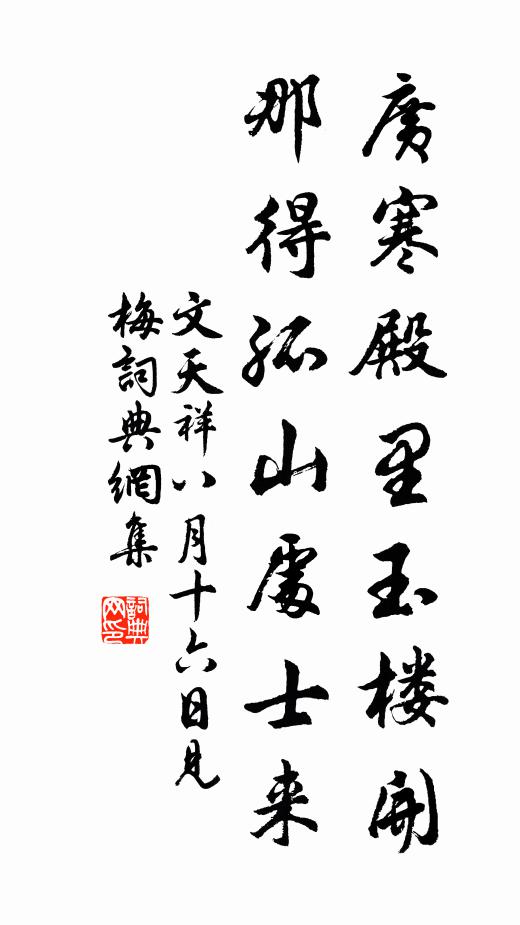 廣寒殿里玉楼開
那得孤山處士来
文天祥八月十六日見
梅詞典網集
詞典
网印